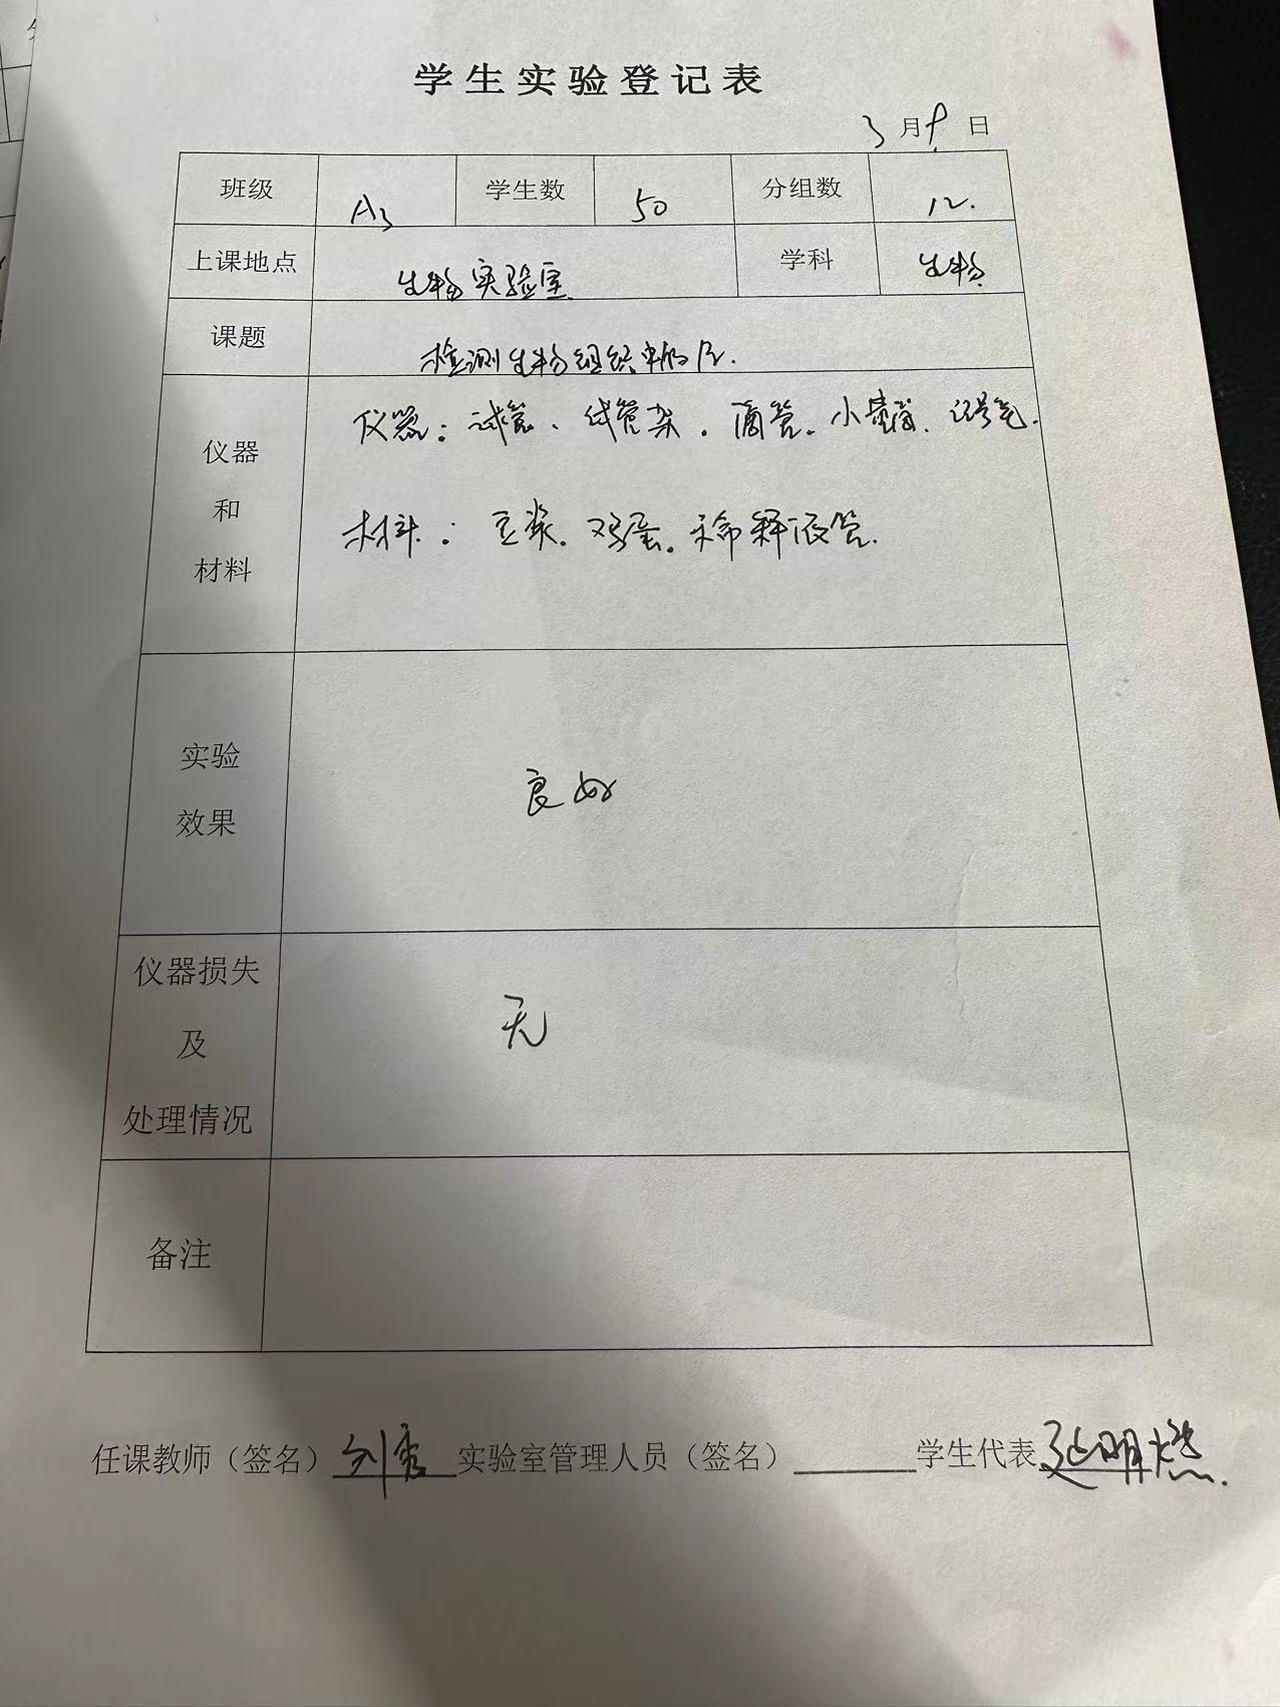 学生实验登记表
3月9日
班级 A3 学生数 50 分组数 12.
上课地点 生物实验室 学科 生物
课题 检测生物组织中的
仪器和材料
仪器：试管、试管架、滴管、小量筒、记号笔.
材料：豆浆、鸡蛋、释液管.
实验效果 良好
仪器损失及处理情况 无
备注
任课教师（签名）刘秀 实验室管理人员（签名）______学生代表 明燃